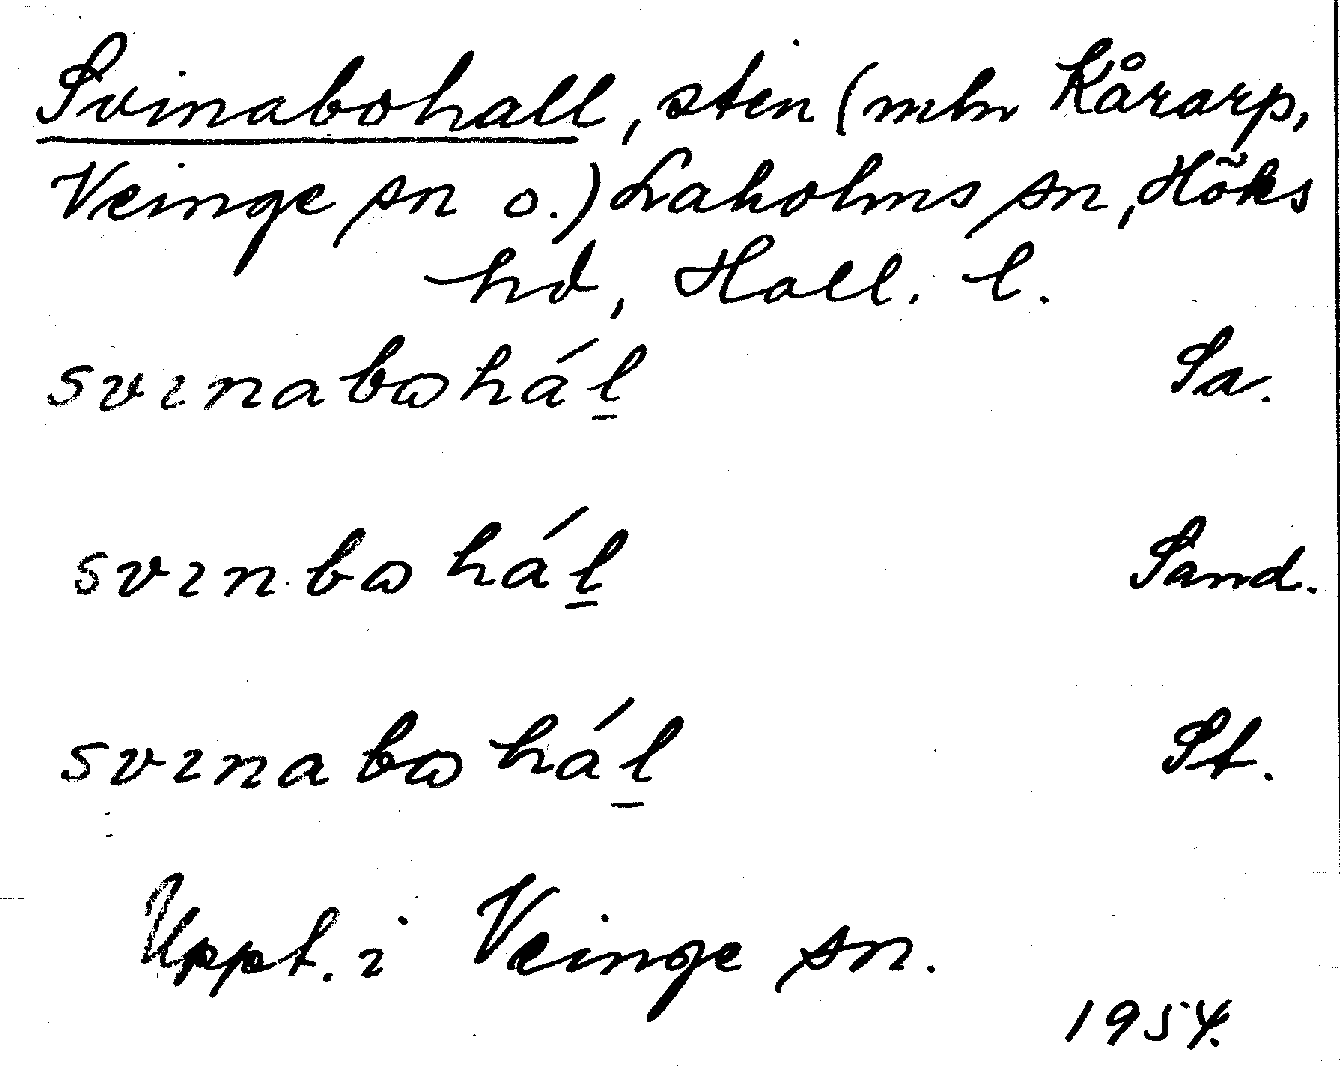 Svinabohall, sten (mln Kårarp,
Veinge sn o.) Laholms sn, Höks
hd, Hall. l.
svınabɷhál̠ Sa.
svınbɷhál̠ Sand.
svınabɷhál̠ St.
Uppt. i Veinge sn.
1954.